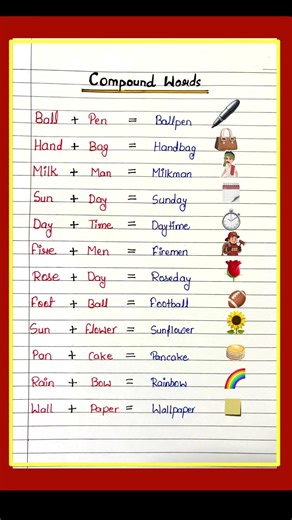 Compound Words
Ball + Pen = Ballpen
Hand + Bag = Handbag
Milk + Man = Milkman
Sun + Day = Sunday
Day + Time = Daytime
Fire + Men = Firemen
Rose + Day = Roseday
Foot + Ball = Football
Sun + flower = Sunflower
Pan + Cake = Pancake
Rain + Bow = Rainbow
Wall + Paper = Wallpaper